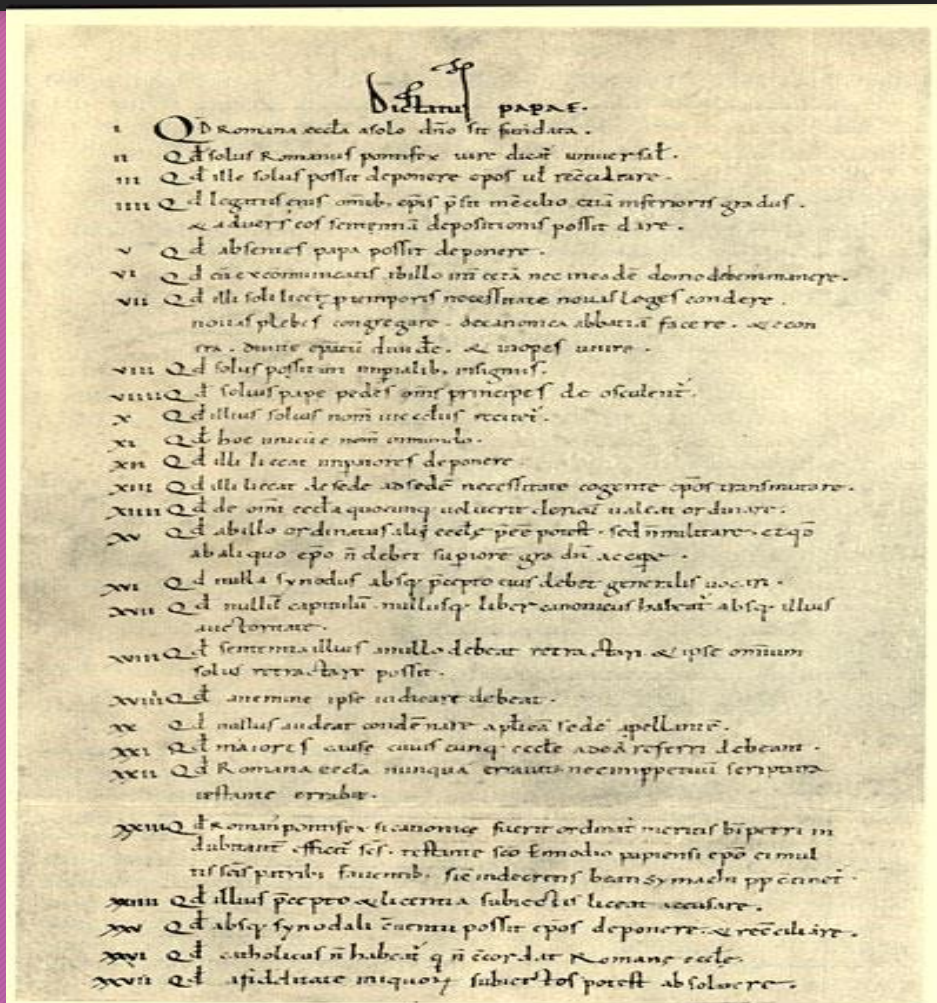 Dictatus papae.
I QD Romana eccła a solo dño sit fundata.
II Qđ solus Romanus pontifex iure dicať universať.
III Qđ ille solus possit deponere epos uł reconciliare.
IIII Qđ legatus eius omīb; epis p̄sit in concilio etiā inferioris gradus.
& adversus eos sententiā depositionis possit dare.
V Qđ absentes papa possit deponere.
VI Qđ cū excomunicatis ab illo int̄ cetā nec in eadē domo debem manere.
VII Qđ illi soli licet p temporis necessitate novas leges condere.
novas plebes congregare. de canonica abbatiā facere. & econ
tra. divite epatū dividẽ. & inopes unire.
VIII Qđ solus possit uti imp̄ialib; insigniis.
VIIII Qđ solius pape pedes om̄s principes deosculent̄.
X Qđ illius solius nom̄ in ecclis recitet̄.
XI Qđ hoc unicũ ẽ nom̄ in mundo.
XII Qđ illi liceat imp̄atores deponere.
XIII Qđ illi liceat de sede ad sedē necessitate cogente epos transmutare.
XIIII Qđ de om̄i eccła quocunq; voluerit clericū valeat ordinare.
XV Qđ ab illo ordinatus alii eccłe p̄ẽẽ potest. sed n̄ militare. et qđ
ab aliquo epo n̄ debet sup̄iorē gradū accipe.
XVI Qđ nulla synodus absq; p̄cepto eius debet generalis vocari.
XVII Qđ nullū capitulū nullusq; liber canonicus habeať absq; illius
auctoritate.
XVIII Qđ sententia illius a nullo debeat retractari & ipse omnium
solus retractare possit.
XVIIII Qđ a nemine ipse iudicare debeat.
XX Qđ nullus audeat condēnare aplicā sedē apellantē.
XXI Qđ maiores cause cuiuscunq; eccłe ad eā referri debeant.
XXII Qđ Romana eccła nunquā erravit nec inp̄petuū scriptura
testante errabit.
XXIII Qđ Roman̄ pontifex si canonice fuerit ordinať meritis bī petri in
dubitanť efficiť scs. testante sco Ennodio papiensi epo ei mul
tis scis patrib; faventib; sic in decretis beati symachi pp contineť.
XXIIII Qđ illius p̄cepto & licentia subiectis liceat accusare.
XXV Qđ absq; synodali conventu possit epos deponere & reconciliare.
XXVI Qđ catholicus n̄ habeať q̄ n̄ concordat Romane eccłe.
XXVII Qđ a fidelitate iniquoꝝ subiectos potest absolvere.